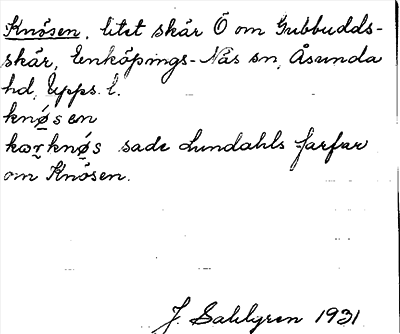 Knösen, litet skär Ö om Gubbudds-
skär, Enköpings-Näs sn, Åsunda
hd, Upps. l.
knø̱sen
kær̤knø̱s sade Lundahls farfar
om Knösen.
J. Sahlgren 1931